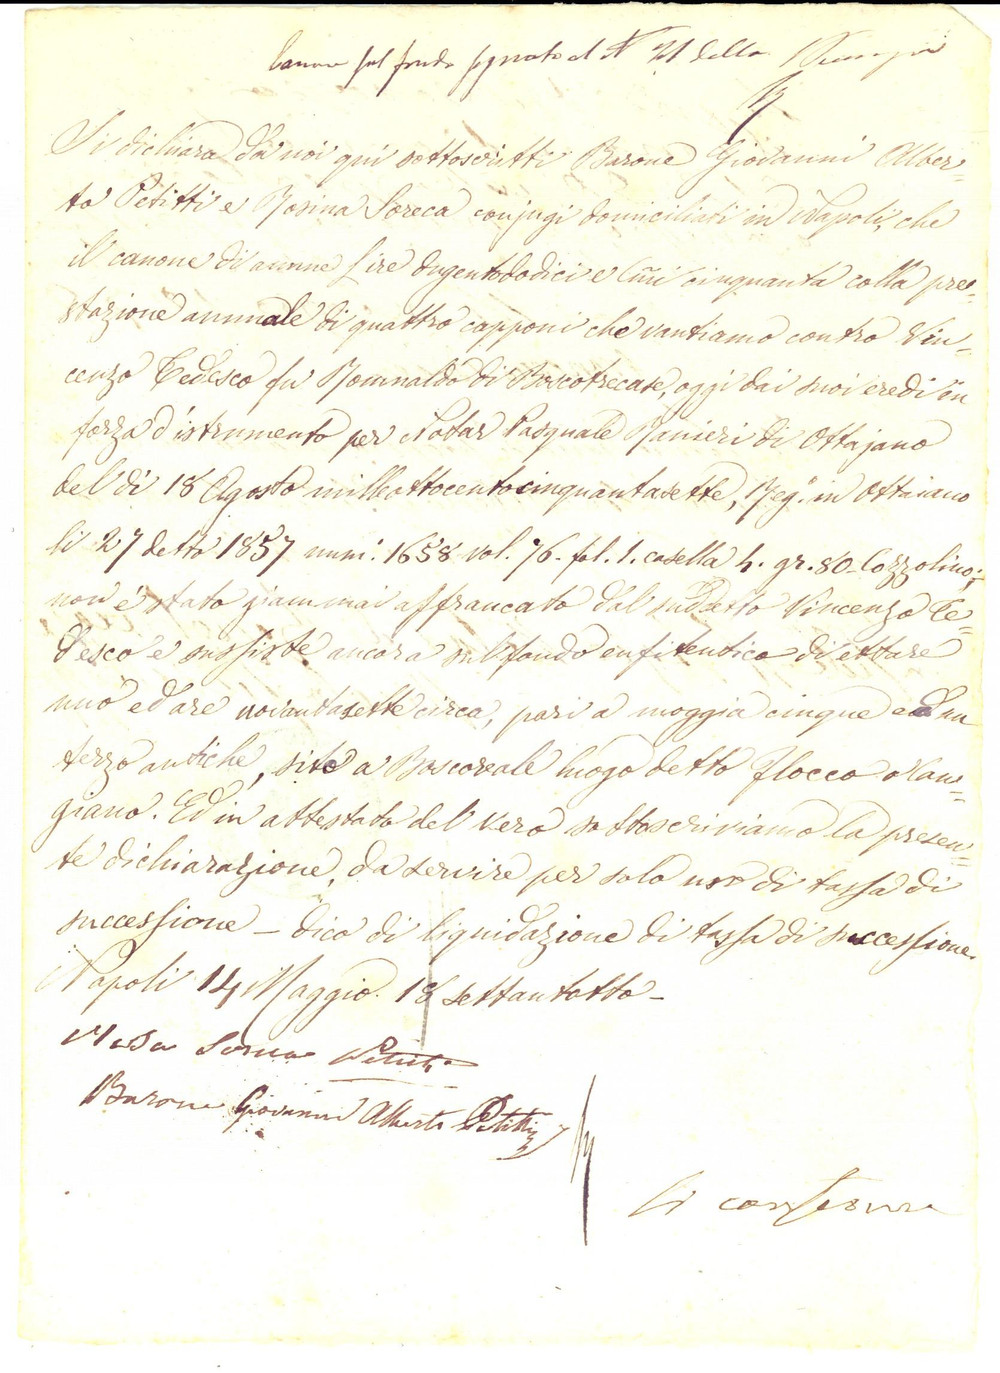 Canone sul fondo segnato al N 21 della
Si dichiara da noi qui sottoscritti Barone Giovanni Alber-
to Petitti e Rosina Soreca conjugi domiciliati in Napoli, che
il canone di annue Lire dugentododici e Cmi cinquanta colla pre-
stazione annuale di quattro capponi che vantiamo contro Vin-
cenzo Tedesco fu Romualdo di Boscotrecase, oggi dai suoi eredi in
forza d'istrumento per Notar Pasquale Ranieri di Ottajano
del dì 18 Agosto milleottocentocinquantasette, Reg.o in Ottaiano
li 27 detto 1857 num.o 1658 vol. 76. fol. 1. casella 4. gr. 80 = Cozzolino;
non è stato giammai affrancato dal suddetto Vincenzo Te-
desco e sussiste ancora sul fondo enfiteutico di ettare
uno ed are novantasette circa, pari a moggia cinque ed un
terzo antiche, sito a Boscoreale luogo detto Flocco o Can-
giano. Ed in attestato del vero sottoscriviamo la presen-
te dichiarazione, da servire per solo uso di tassa di
successione — dico di liquidazione di tassa di successione.
Napoli 14 Maggio 18 settantotto —
Petitti
Barone Giovanni Alberto Petitti
Si conserva